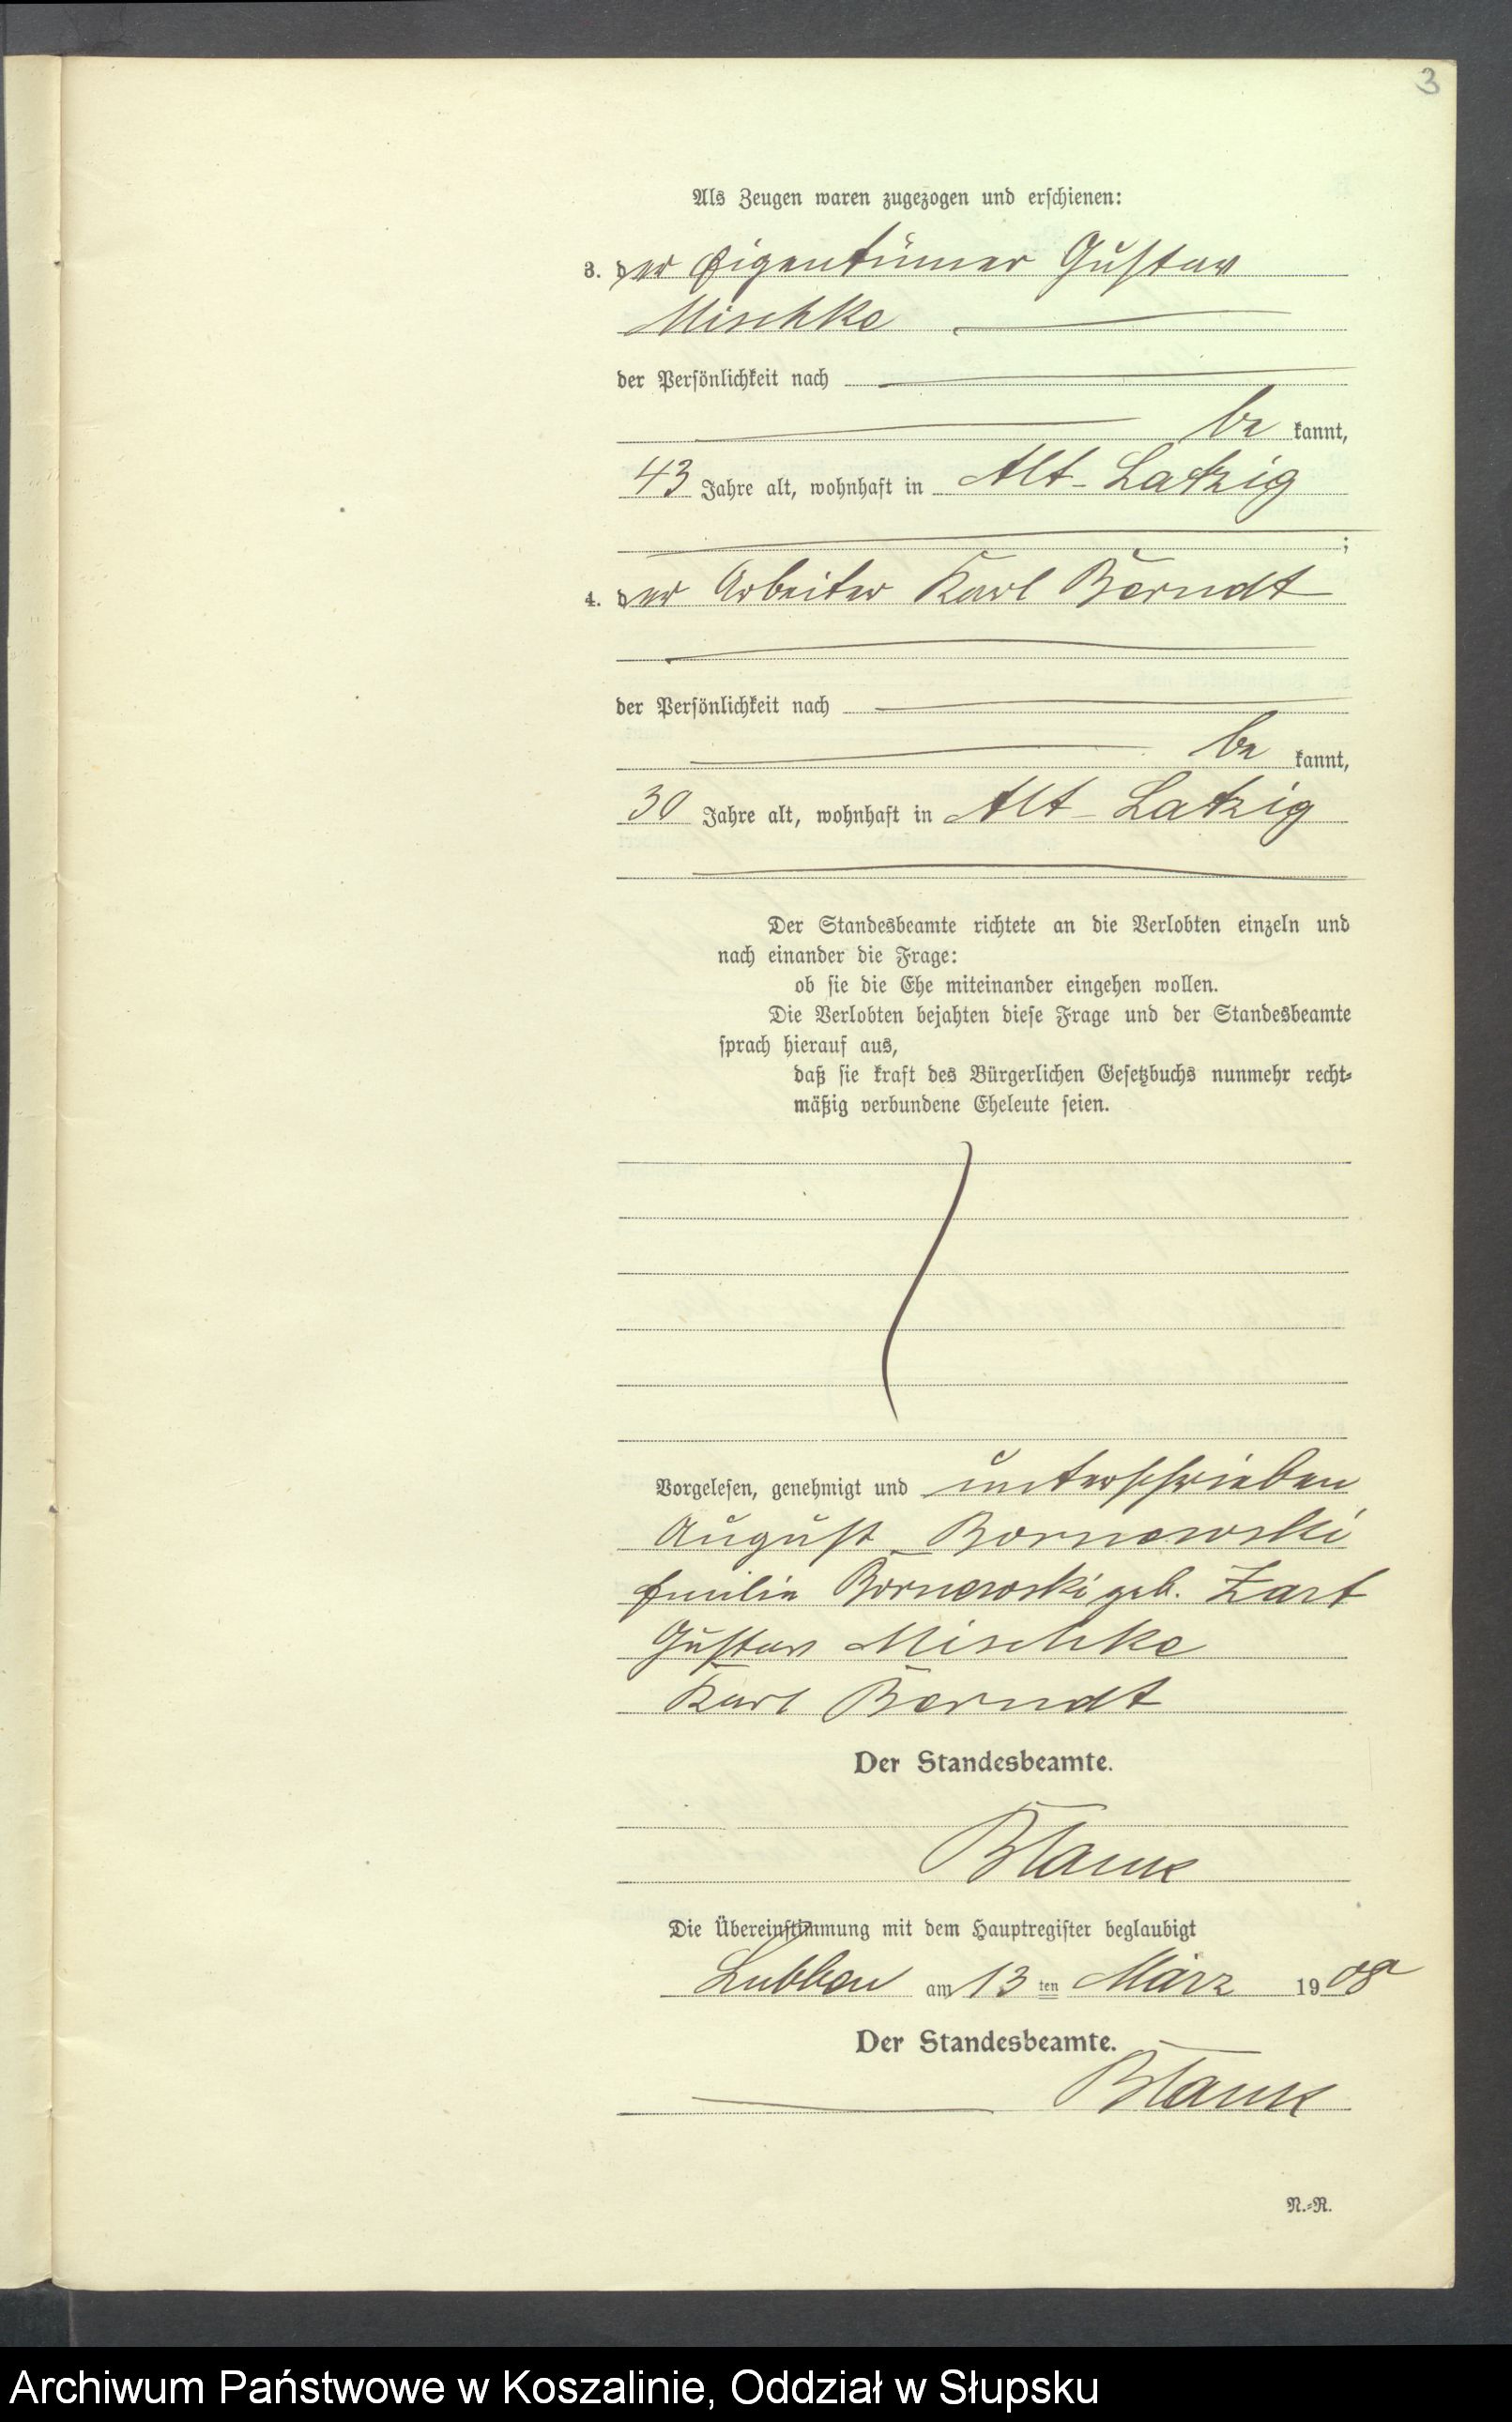 3
Als Zeugen waren zugezogen und erschienen:
3. der Eigentümer Gustav
Mischke
der Persönlichkeit nach
be kannt,
43 Jahre alt, wohnhaft in Alt-Latzig
;
4. der Arbeiter Karl Berndt
der Persönlichkeit nach
be kannt,
30 Jahre alt, wohnhaft in Alt-Latzig
Der Standesbeamte richtete an die Verlobten einzeln und
nach einander die Frage:
ob sie die Ehe miteinander eingehen wollen.
Die Verlobten bejahten diese Frage und der Standesbeamte
sprach hierauf aus,
daß sie kraft des Bürgerlichen Gesetzbuchs nunmehr recht-
mäßig verbundene Eheleute seien.
Vorgelesen, genehmigt und unterschrieben
August Bornowski
Emilie Bornowski geb. Zart
Gustav Mischke
Karl Berndt
Der Standesbeamte.
Blank
Die Übereinstimmung mit dem Hauptregister beglaubigt
Lubben am 13 ten März 1908
Der Standesbeamte.
Blank
N.-R.
Archiwum Państwowe w Koszalinie, Oddział w Słupsku